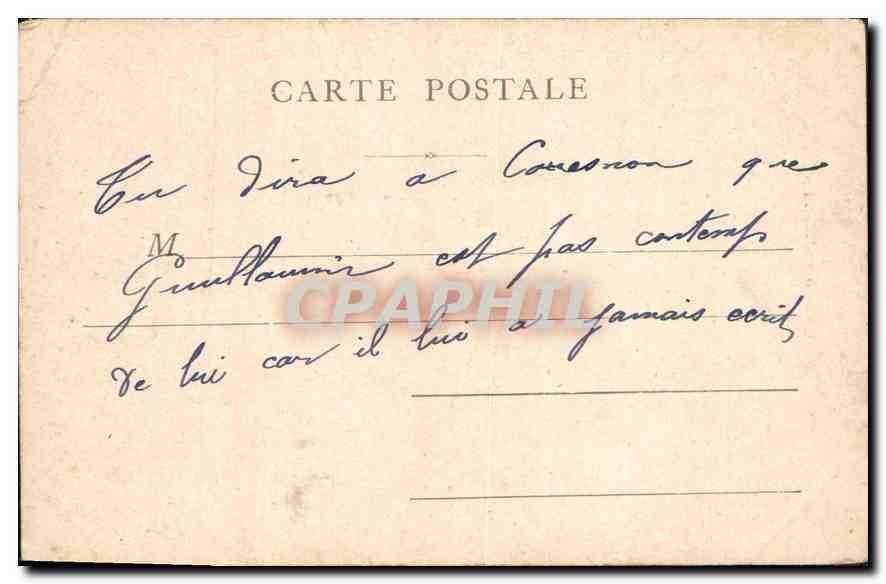 CARTE POSTALE
Tu dira a Couesnon que
M
Guillaumin est pas contemp
de lui car il lui a jamais ecrit
CPAPHIL